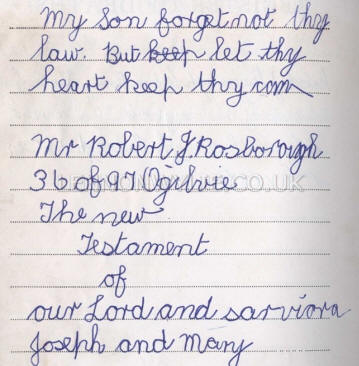 My Son forget not thy
law. But keep let thy
heart keep thy com
Mr Robert J. Rosborough
36 of 97 Ogilvie
The new
Testament
of
our Lord and sarviora
Joseph and Mary